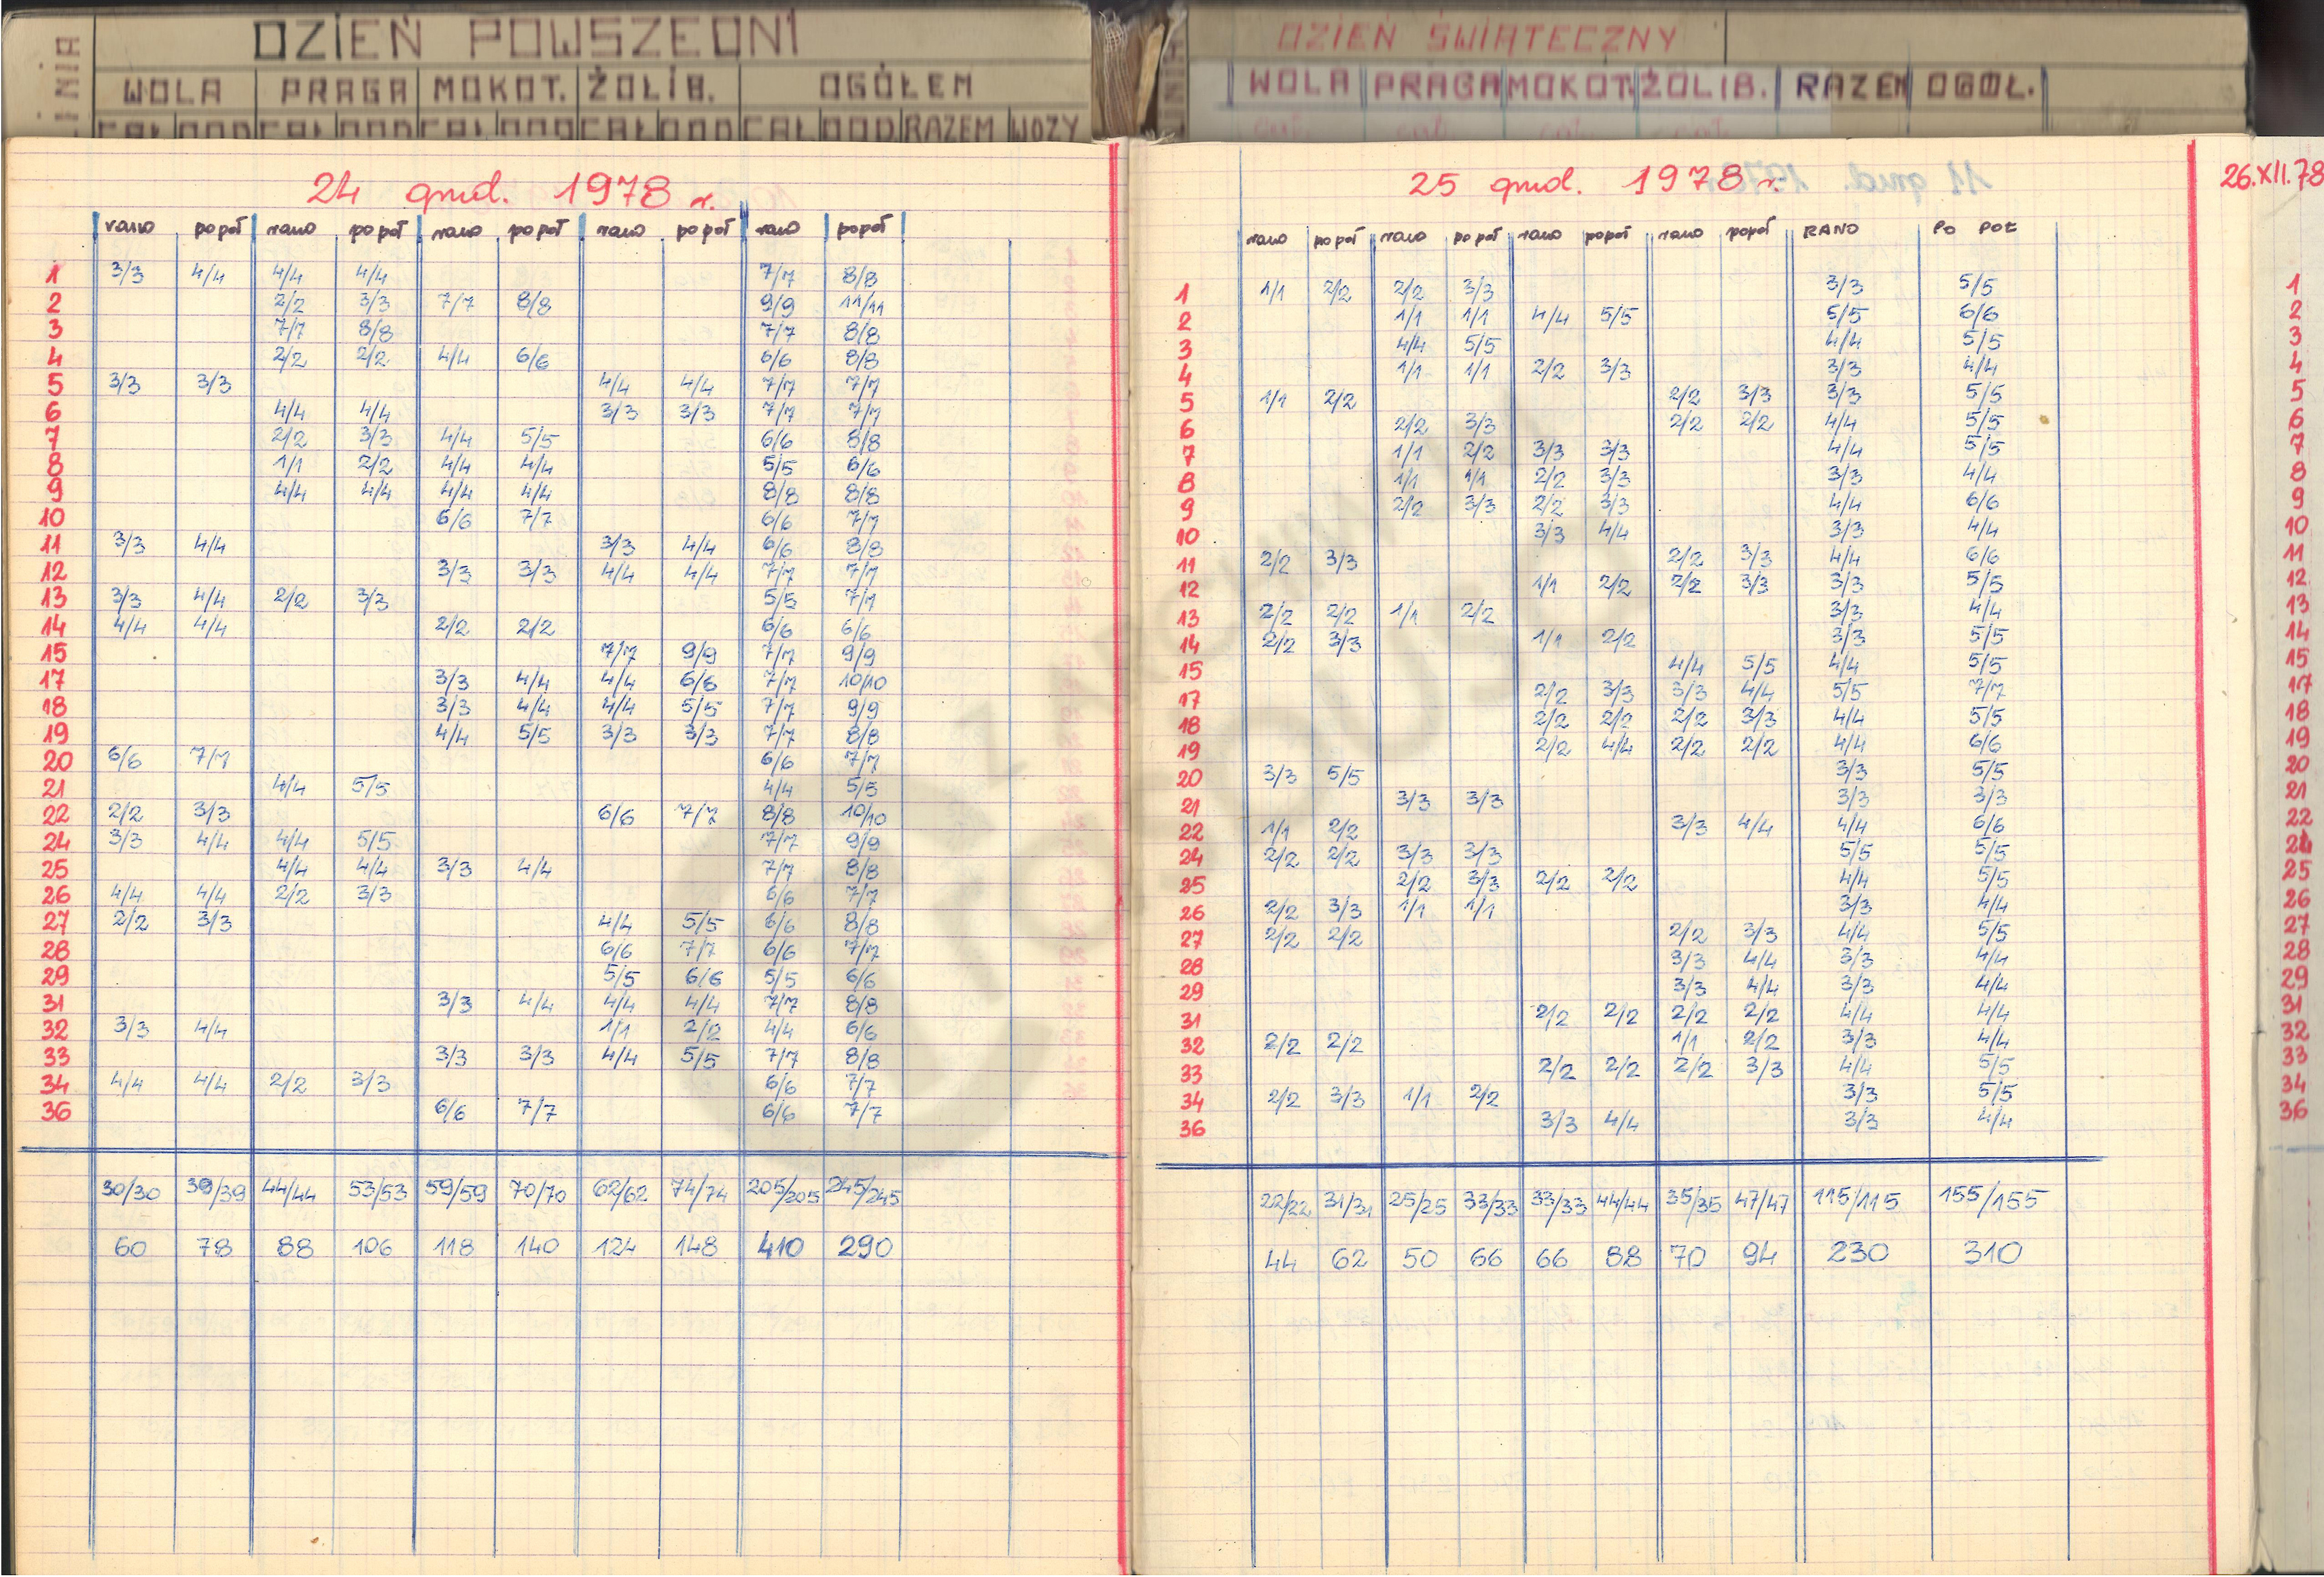 LINIA DZIEŃ POWSZEDNI
WOLA PRAGA MOKOT. ŻOLIB. OGÓŁEM
CAŁ DOD CAŁ DOD CAŁ DOD CAŁ DOD CAŁ DOD RAZEM WOZY
24 grud. 1978 r.
rano popoł rano popoł rano popoł rano popoł rano popoł
1 3/3 4/4 4/4 4/4 7/7 8/8
2 2/2 3/3 7/7 8/8 9/9 11/11
3 7/7 8/8 7/7 8/8
4 2/2 2/2 4/4 6/6 6/6 8/8
5 3/3 3/3 4/4 4/4 7/7 7/7
6 4/4 4/4 3/3 3/3 7/7 7/7
7 2/2 3/3 4/4 5/5 6/6 8/8
8 1/1 2/2 4/4 4/4 5/5 6/6
9 4/4 4/4 4/4 4/4 8/8 8/8
10 6/6 7/7 6/6 7/7
11 3/3 4/4 3/3 4/4 6/6 8/8
12 3/3 3/3 4/4 4/4 7/7 7/7
13 3/3 4/4 2/2 3/3 5/5 7/7
14 4/4 4/4 2/2 2/2 6/6 6/6
15 7/7 9/9 7/7 9/9
17 3/3 4/4 4/4 6/6 7/7 10/10
18 3/3 4/4 4/4 5/5 7/7 9/9
19 4/4 5/5 3/3 3/3 7/7 8/8
20 6/6 7/7 6/6 7/7
21 4/4 5/5 4/4 5/5
22 2/2 3/3 6/6 7/7 8/8 10/10
24 3/3 4/4 4/4 5/5 7/7 9/9
25 4/4 4/4 3/3 4/4 7/7 8/8
26 4/4 4/4 2/2 3/3 6/6 7/7
27 2/2 3/3 4/4 5/5 6/6 8/8
28 6/6 7/7 6/6 7/7
29 5/5 6/6 5/5 6/6
31 3/3 4/4 4/4 4/4 7/7 8/8
32 3/3 4/4 1/1 2/2 4/4 6/6
33 3/3 3/3 4/4 5/5 7/7 8/8
34 4/4 4/4 2/2 3/3 6/6 7/7
36 6/6 7/7 6/6 7/7
30/30 39/39 44/44 53/53 59/59 70/70 62/62 74/74 205/205 245/245
60 78 88 106 118 140 124 148 410 290
DZIEŃ ŚWIĄTECZNY
WOLA PRAGA MOKOT. ŻOLIB. RAZEM OGÓŁ.
25 grud. 1978 r.
rano popoł rano popoł rano popoł rano popoł RANO PO POŁ
1 1/1 2/2 2/2 3/3 3/3 5/5
2 1/1 1/1 4/4 5/5 5/5 6/6
3 4/4 5/5 4/4 5/5
4 1/1 1/1 2/2 3/3 3/3 4/4
5 1/1 2/2 2/2 3/3 3/3 5/5
6 2/2 3/3 2/2 2/2 4/4 5/5
7 1/1 2/2 3/3 3/3 4/4 5/5
8 1/1 1/1 2/2 3/3 3/3 4/4
9 2/2 3/3 2/2 3/3 4/4 6/6
10 3/3 4/4 3/3 4/4
11 2/2 3/3 2/2 3/3 4/4 6/6
12 1/1 2/2 2/2 3/3 3/3 5/5
13 2/2 2/2 1/1 2/2 3/3 4/4
14 2/2 3/3 1/1 2/2 3/3 5/5
15 4/4 5/5 4/4 5/5
17 2/2 3/3 3/3 4/4 5/5 7/7
18 2/2 2/2 2/2 3/3 4/4 5/5
19 2/2 4/4 2/2 2/2 4/4 6/6
20 3/3 5/5 3/3 5/5
21 3/3 3/3 3/3 3/3
22 1/1 2/2 3/3 4/4 4/4 6/6
24 2/2 2/2 3/3 3/3 5/5 5/5
25 2/2 3/3 2/2 2/2 4/4 5/5
26 2/2 3/3 1/1 1/1 3/3 4/4
27 2/2 2/2 2/2 3/3 4/4 5/5
28 3/3 4/4 3/3 4/4
29 3/3 4/4 3/3 4/4
31 2/2 2/2 2/2 2/2 4/4 4/4
32 2/2 2/2 1/1 2/2 3/3 4/4
33 2/2 2/2 2/2 3/3 4/4 5/5
34 2/2 3/3 1/1 2/2 3/3 5/5
36 3/3 4/4 3/3 4/4
22/22 31/31 25/25 33/33 33/33 44/44 35/35 47/47 115/115 155/155
44 62 50 66 66 88 70 94 230 310
26.XII.78
1
2
3
4
5
6
7
8
9
10
11
12
13
14
15
17
18
19
20
21
22
24
25
26
27
28
29
31
32
33
34
36